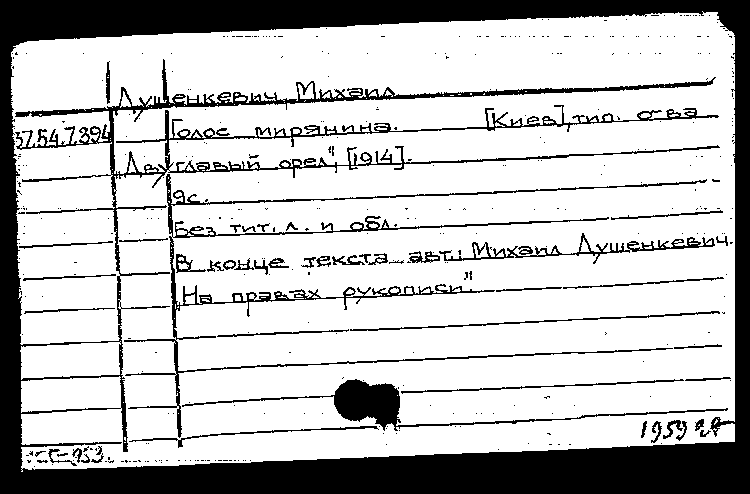 Душенкевич, Михаил
37.54.7.394
Голос мирянина. [Киев], тип. о-ва
„Двуглавый орел", [1914].
9с.
Без тит. л. и обл.
В конце текста авт.: Михаил Душенкевич.
„На правах рукописи."
1959